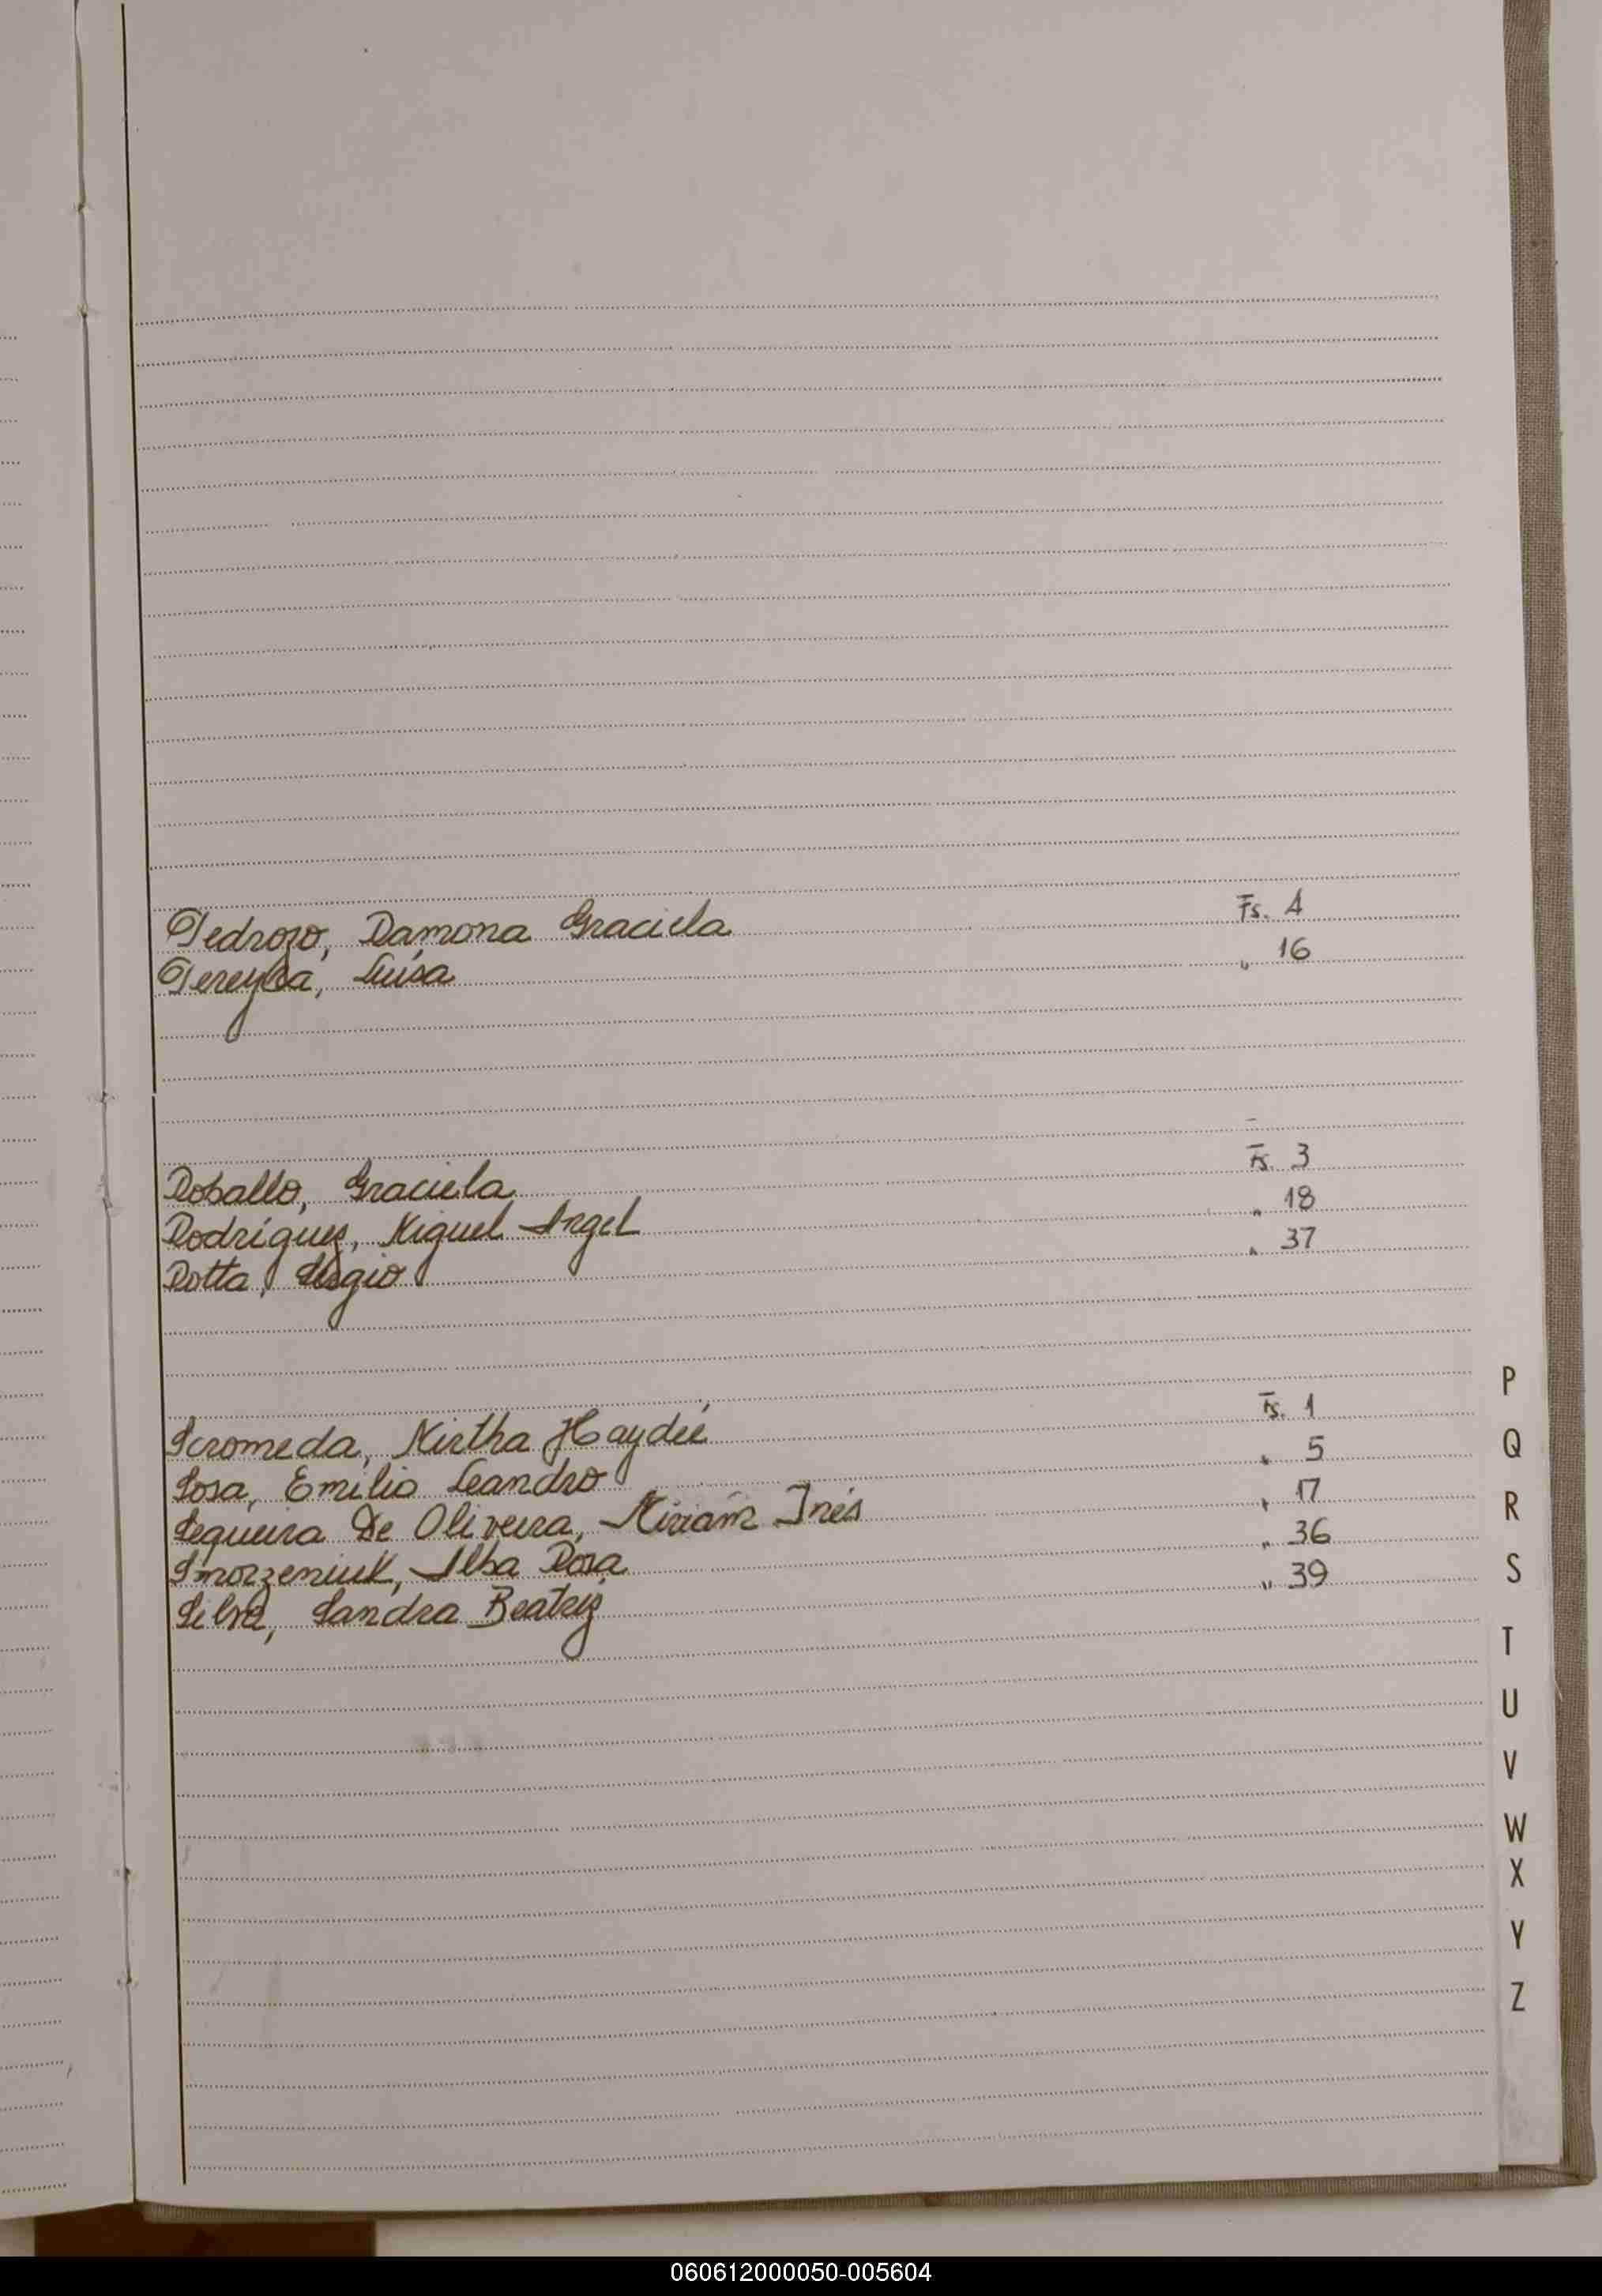 Pedrozo, Ramona Graciela Fs. 4
Pereyra, Luisa " 16
Roballo, Graciela Fs. 3
Rodríguez, Miguel Angel " 18
Rotta, Sergio " 37
Scromeda, Mirtha Haydeé Fs. 1
Sosa, Emilio Leandro " 5
Sequeira De Oliveira, Miriam Inés " 17
Smorzeniuk, Alba Rosa " 36
Silva, Sandra Beatriz " 39
P
Q
R
S
T
U
V
W
X
Y
Z
060612000050-005604